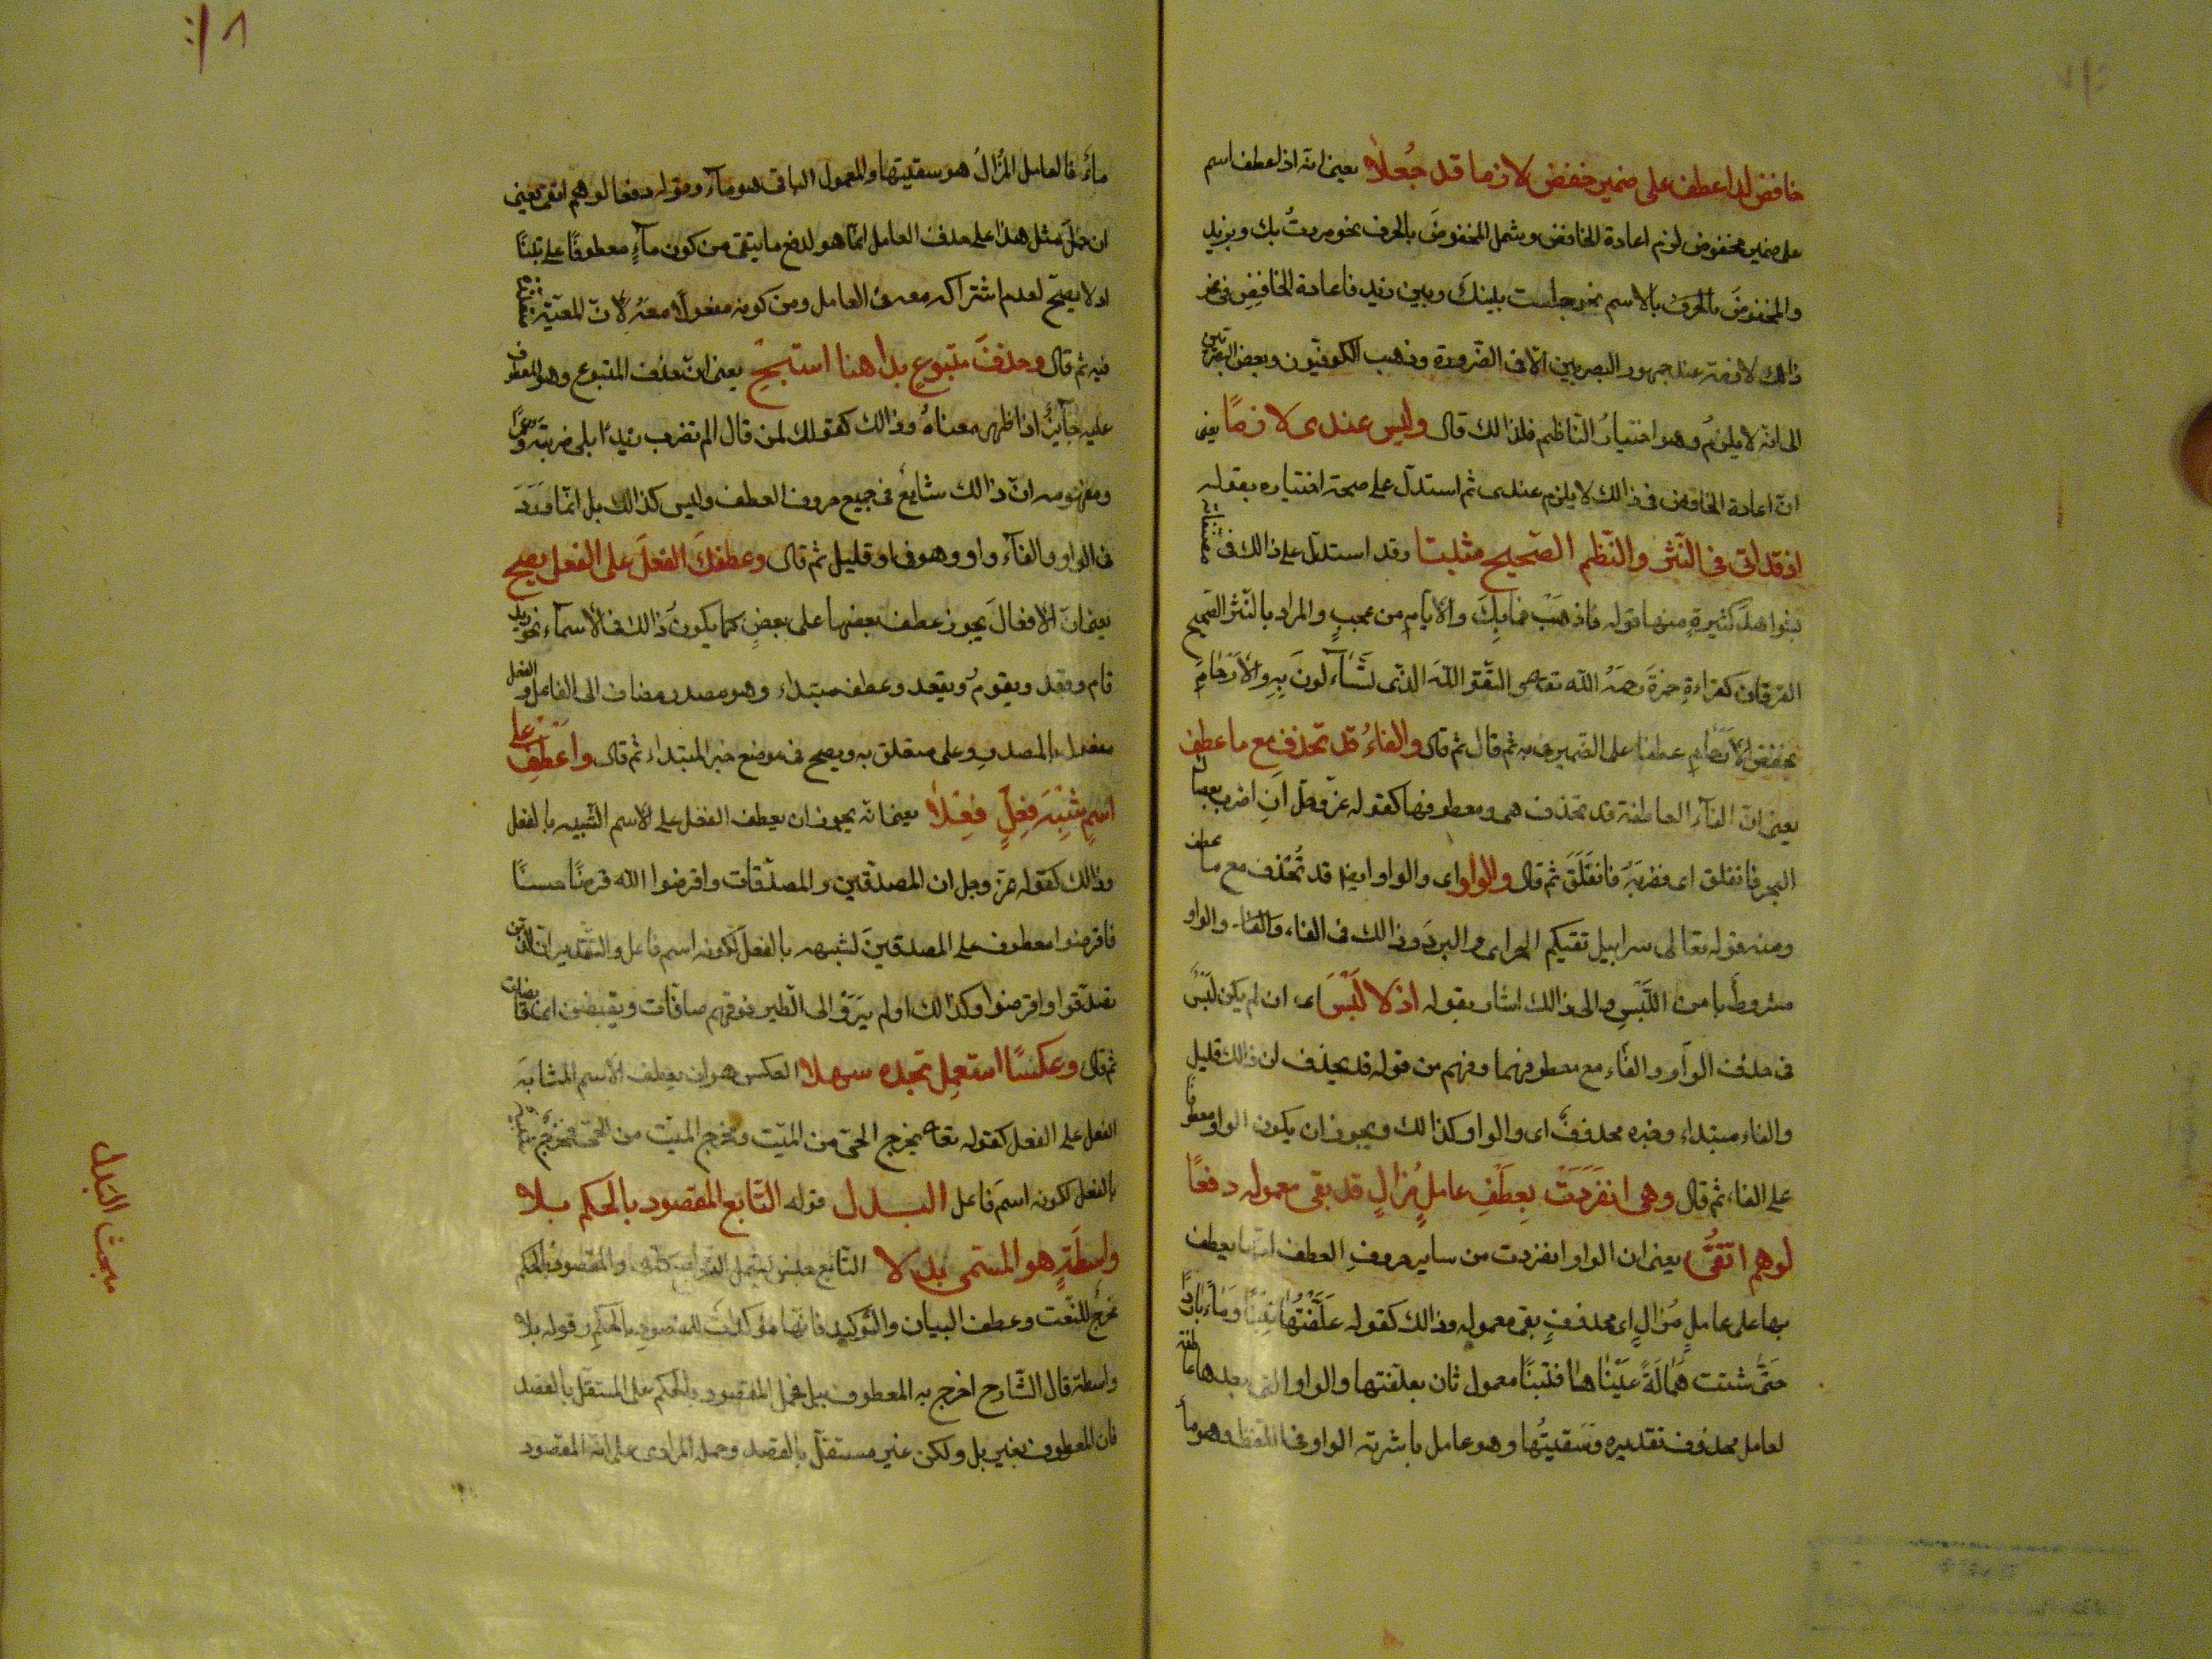 خافض لدا عطف على ضمير خفض لازما قد جُعلا يعنى انه اذا عطف اسم
على ضمير مخفوض لزم اعادة الخافض وشمل المخفوضَ بالحرف نحو مررتُ بك وبزيد
والمخفوضَ بالاسم نحو جلست بينكَ وبين زيد فاعادة الخافِض فى نحو
ذالك لازمة عند جمهور البصريين الّا فى الضّرورة وذهب الكوفيّون وبعض البصريين
الى انه لا يلزمُ وهو اختيارُ النّاظم فلذالك قال وليس عندى لازمًا يعنى
انّ اعادة الخافض فى ذالك لا يلزم عندى ثم استدلّ على صحة اختياره بقوله
اذ قد اتى فى النّثر والنّظم الصّحيح مثبتا وقد استدلّ على ذالك فى
بشواهدَ كثيرةٍ منها قوله فاذهبْ فما بِكَ والأيّامِ من عجبٍ والمراد بالنّثر الصّحيح
القرءان كقراءةِ حمزةَ رحمَهُ الله تعالى واتّقو اللهَ الذى تسَّآءلونَ بِهِ والأرحامِ
بخفض الأرحامِ عطفا على الضّمير فى به ثم قال ثم قال والفاءُ قد تحذف مع ما عطفت
يعنى انّ الفآءَ العاطفة قد تحذف هى ومعطوفها كقوله عزّ وجلّ أنِ اضرب بعصاك
البحر فانفلق اى فضربَهُ فانفَلَقَ ثم قال والواو اى والواو ايضا قد تُحذف مع ما عطفت
ومنه قوله تعالى سرابيل تقيكم الحر اى والبردَ وذالك فى الفاء والواو
مشروطٌ بامن اللّبْسِ والى ذالك اشار بقوله اذ لا لَبْسَ اى ان لم يكن لَبْسٌ
فى حذف الوآو والفآء مع معطوفهما وفهم من قوله قد يحذف ان ذالك قليل
والفاء مبتداء وخبره محذوفٌ اى والواو كذالك ويجوز ان يكون الواو معطوفا
على الفاء ثم قال وهى انفَرَدَتْ بِعطْفِ عاملٍ مُزالٍ قد بقى معموله دفعًا
لوهم اتُّقِىَ يعنى ان الواو انفردت من ساير حروفِ العطف انّها يعطف
بها على عاملٍ مُزالٍ اى محذوفٍ بقى معموله وذالك كقوله عَلَفْتُها تِبْنًا وَمَآءً باردًا
حَتَّى شتت هَمَّالَةً عَيْنَاها فتبنًا معمول ثان بعلفتها والواو التى بعدها عاطفة
لعامل محذوف تقديره وَسَقيتُها وهو عامل باشرته الواو فى اللفظ وهو مآء
١٨
مآءً فالعامل المُزالُ هو سقيتها والمعمول الباقى هو مآء وقوله دفعا لوهم اتقى يعنى
ان حَمْلَ مثل هذا على حذف العامل انّما هو لدفع ما يتقى من كون مآءٍ معطوفًا على تبنًا
اذ لا يصح لعدم اشتراكه معه فى العامل ومن كونه مفعولًا معه لانّ المعيّة
فيه ثم قال وحذفَ متبوعٍ بدا هنا استبحْ يعنى انّ حذف المتبوع وهو المعطوف
عليه جآئزٌ اذا ظهر معناهُ وذالك كقولك لمن قال الم تضرب زيدًا بلى ضربته وعمرًا
ومفهومه انّ ذالك سَايغٌ فى جميع حروف العطف وليس كذالك بل انّما وَرَدَ
فى الواو والفآء واو وهو فى او قليل ثم قال وعطفكَ الفعلَ على الفعل يصح
يعنى انّ الأفعالَ يجوز عطف بعضها على بعضٍ كما يكونُ ذالك فى الأسمآء نحو زيد
قام وقعد ويقومُ ويقعد وعطف مبتداء وهو مصدر مضاف الى الفاعل والفعل
مفعول بالمصدر وعلى متعلق به ويصح فى موضع خبر المبتداء ثم قال واعطِفْ على
اسمٍ شِبْهِ فِعلٍ فِعلًا يعنى انّه يجوز ان يعطف الفعل على الاسم الشّبيه بالفعل
وذالك كقوله عزّ وجل ان المصدّقين والمصدّقات واقرضوا الله قرضًا حسنًا
فاقرضوا معطوف على المصدقينَ لشبهه بالفعل لكونه اسم فاعل والتّقدير انّ الذين
تصدّقوا واقرضوا وكذالك اولم يَرَوْا الى الطّير فوقهم صافّات ويقبضن اى قابضات
ثم قال وعكسًا استعمِل تجده سهلا العكس هو ان يعطف الأسم المشابهَ
الفعل على الفعل كقوله تعالى يخرج الحىّ من الميّت ومخرج الميّت من الحىّ فمخرجٌ
بالفعل لكونه اسمَ فاعل البدل قوله التّابع المقصود بالحكم بلا
واسطَةٍ هو المسمّى بدلا التّابع جنس يشمل التّوابع كلّها والمقصود بالحكم
مخرجٌ للنّعت وعطف البيان والتّوكيد فانّها مؤكداتٌ للمقصودِ بالحكمِ وقوله بلا
واسطة قال الشّارح اخرج به المعطوف ببل فحمل المقصود بالحكم على المستقلّ بالقصد
فان المعطوف بغير بل ولكن غير مستقلّ بالقصد وحمله المرادى على انّه المقصود
مبحث البَدل